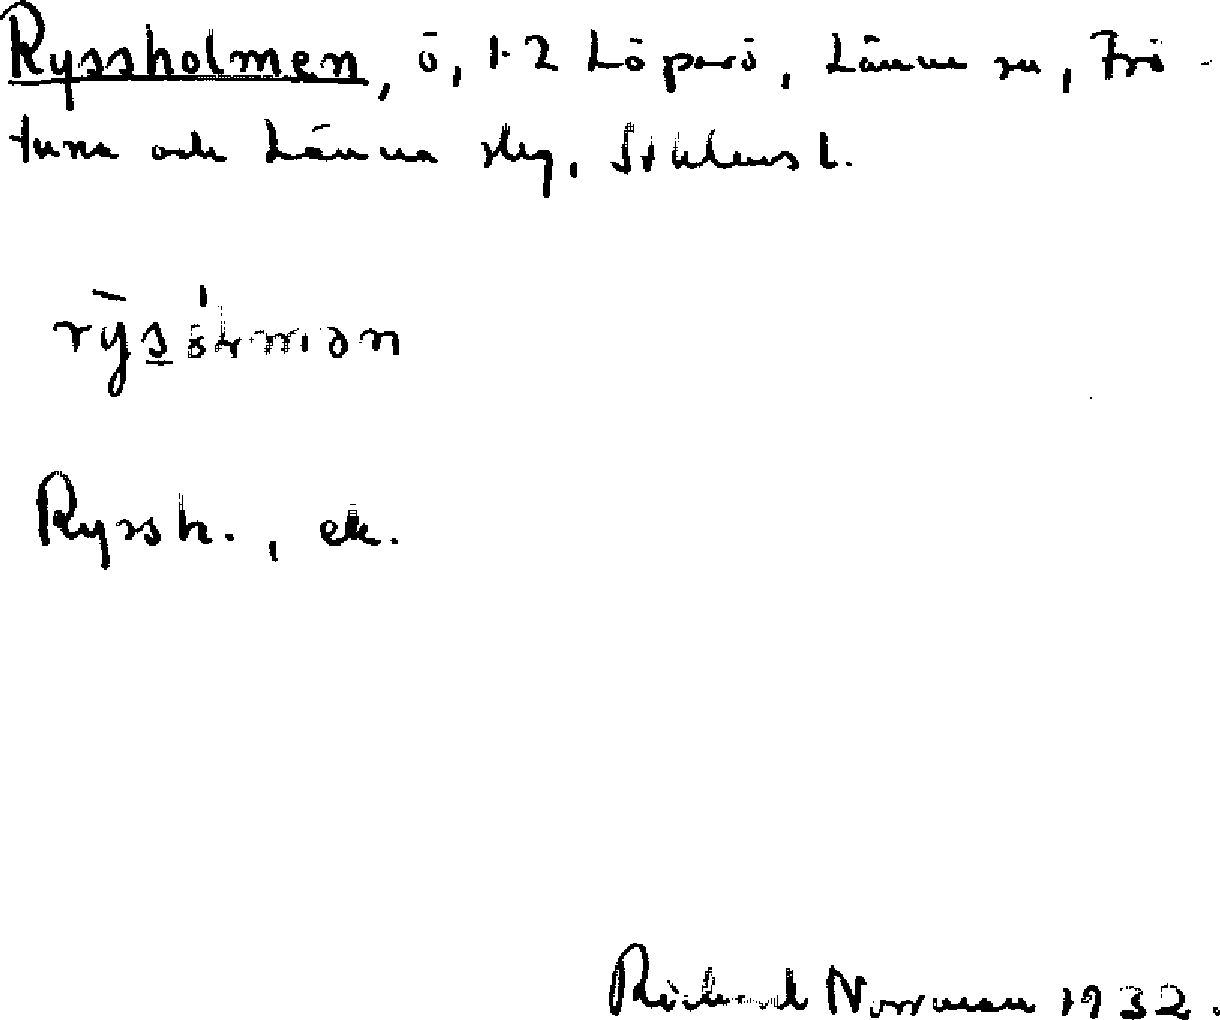 Ryssholmen, ö, 1-2 Löparö, Länna sn, Frö-
tuna och Länna skg, Sthlms l.
Ryssh., ek.
Richard Norrman 1932.